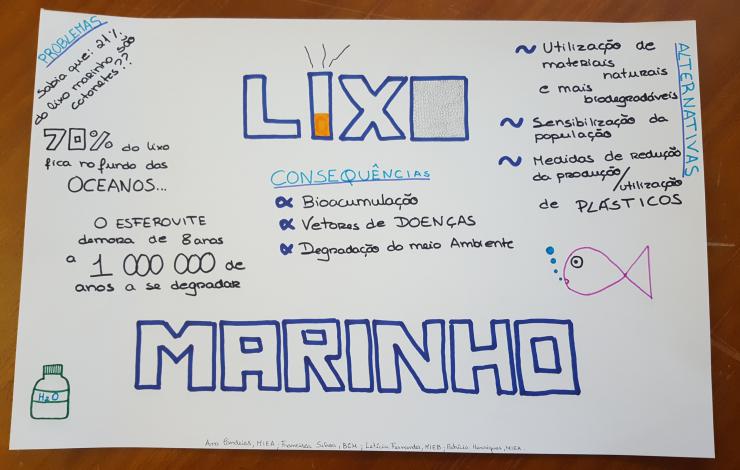 PROBLEMAS
Sabia que: 21%
do lixo marinho são
cotonetes??
70% do lixo
fica no fundo dos
OCEANOS...
O ESFEROVITE
demora de 8 anos
a 1 000 000 de
anos a se degradar
LIXO
CONSEQUÊNCIAS
Bioocumulação
Vetores de DOENÇAS
Degradação do meio Ambiente
ALTERNATIVAS
~ Utilização de
materiais
naturais
e mais
biodegradáveis
~ Sensibilização da
população
~ Medidas de redução
da produção/utilização
de PLÁSTICOS
MARINHO
H2O
Ana Candeias, MIEA; Francisca, BCM; Letícia Fernandes, MIEB; Patrícia Henriques, MIEA